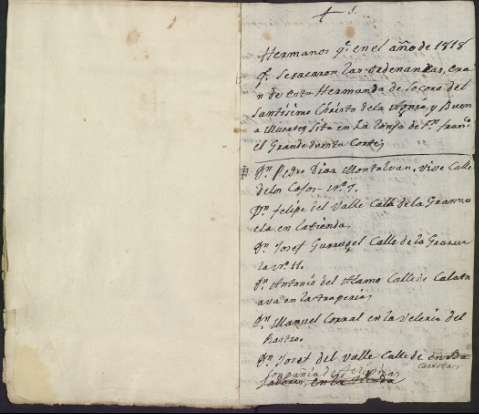 Hermanos q.e en el año de 1818
q.e se sacaron las ordenanzas, era
n de esta Hermanda de Socoro del
Santisimo Christo de la Agonia, y Buen
a Muerte, Sita en La de S.n Fran.co
el Grande de esta Corte,
D.n Pedro Diaz Montalvan, vive Calle
de los Cofos n.o 7.
D.n Felipe del Valle Calle de la Gramm
ela en la tienda.
D.n Josef Calle de la Gramm
la n.o 11.
D.n Antonio del Alamo Calle de Calatr
ava en la traperia,
D.n Manuel Corral en la Veleria del
Rastro.
D.n Josef del Valle Calle de